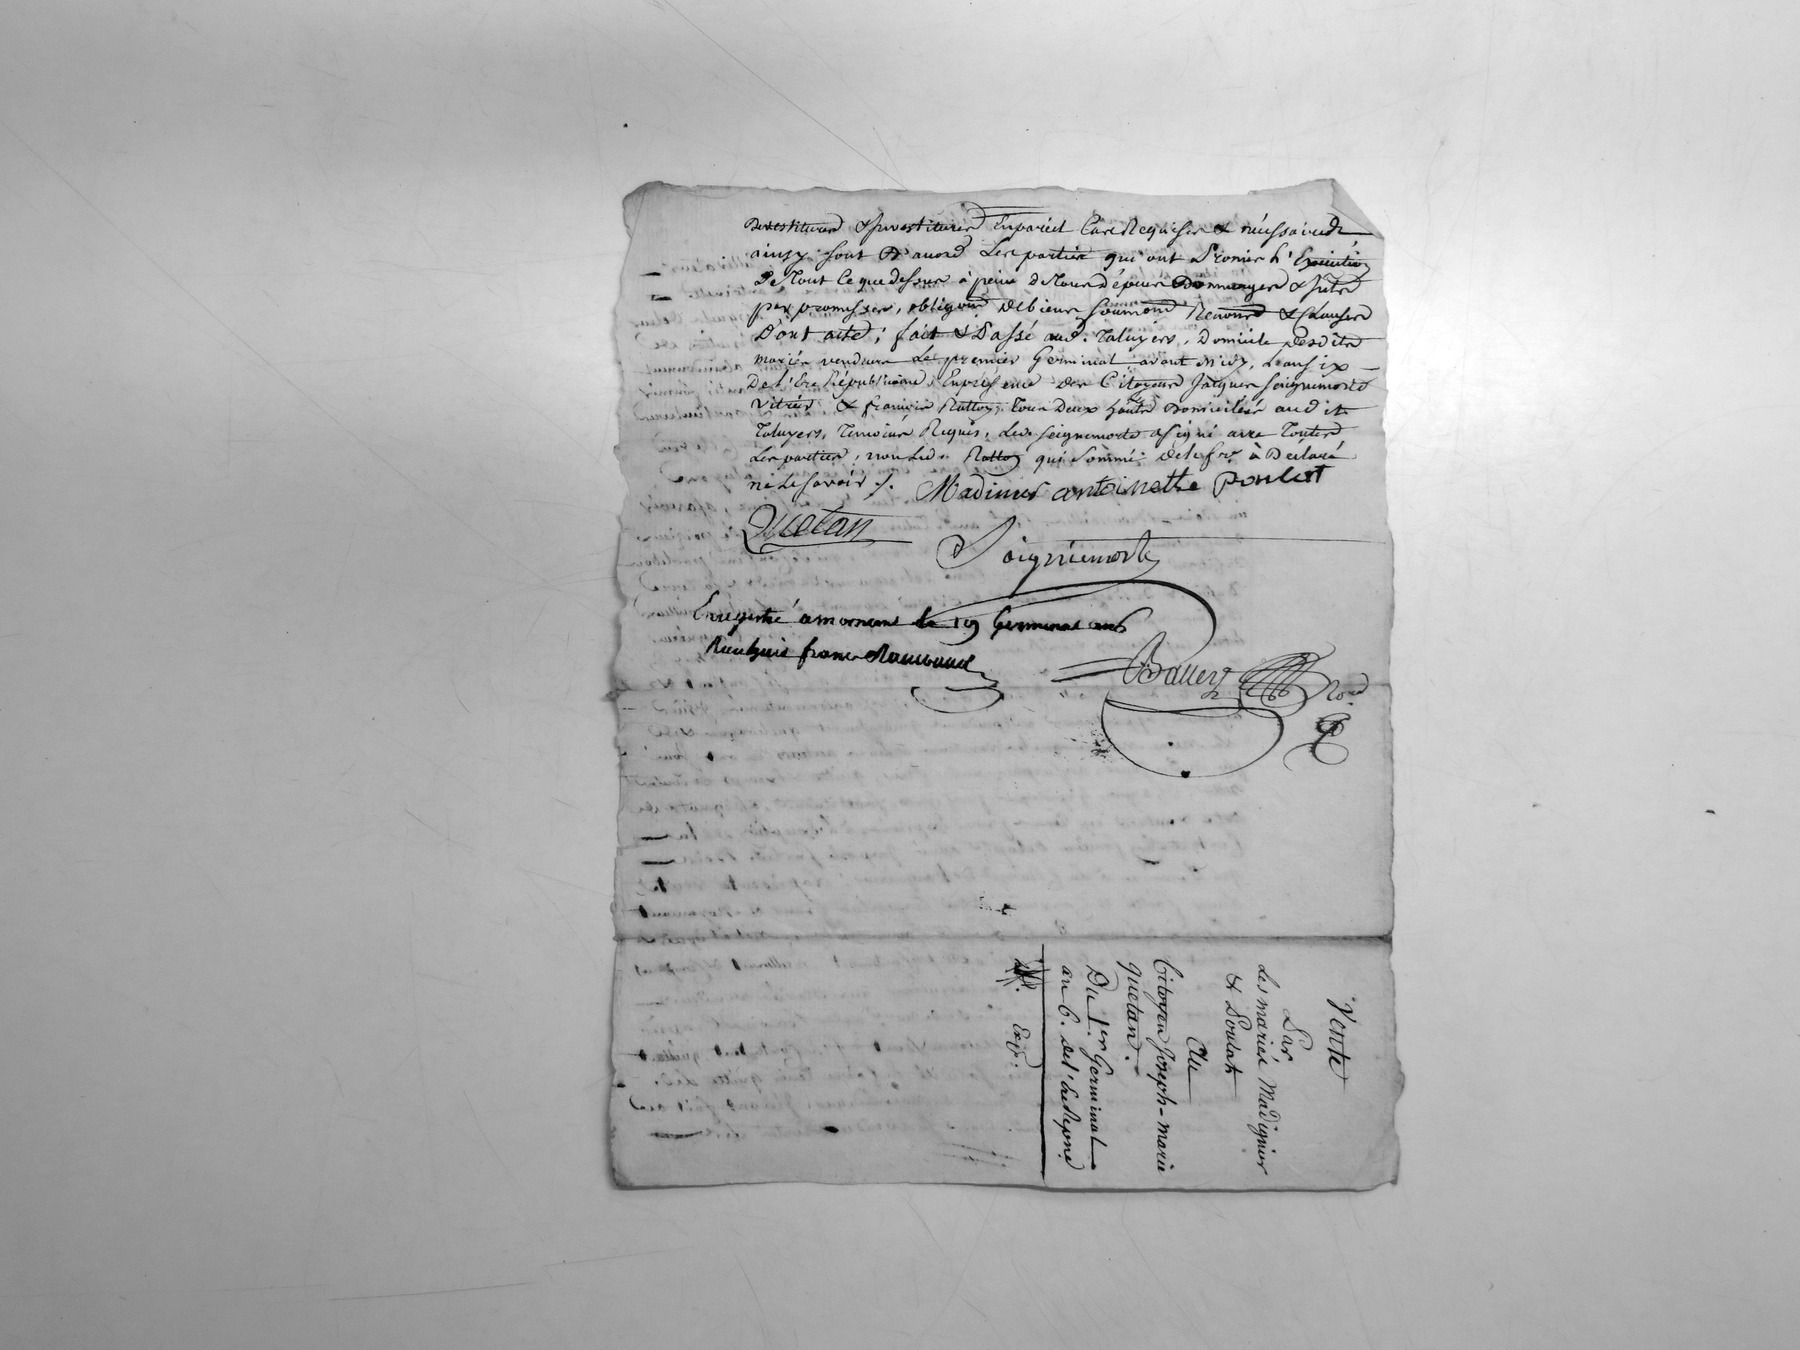 Devestitures & Investitures En pareil Cas Requises & néssaires
ainsy sont D'acord Les parties qui ont Promis L'Exécution
De Tout Ce que dessus à peine de Tous dépens Dommages & Intés
par promesses, obligons de biens soumons Renons & Clauses
Dont acte; fait & Passé aud. Taluyers, Domicile Desdits
mariés vendeurs Le premier Germinal avant midy, L'an six
De L'Ere Républicaine, En présence des Citoyens Jacques Seignemorte
Vitrier & françois Rattoy, Tous Deux habts Domiciliés audit
Taluyers, Temoins Requis, Led. Seignemorte a signé avec Toutes
Les parties, non Led. Rattoy qui Sommé de le fre à Déclaré
ne Le savoir ./. Madinier antoinette Poulat
Quetan
Soignemorte
Enregistré a mornant le 19 Germinal an 6
Reçu huit francs
Nore
Vente
Par
Les mariés Madignier
& Poulat
Au
Citoyen Joseph-marie
Quetan.
Du 1er Germinal
an 6. de L'Ere Répne
Exd.